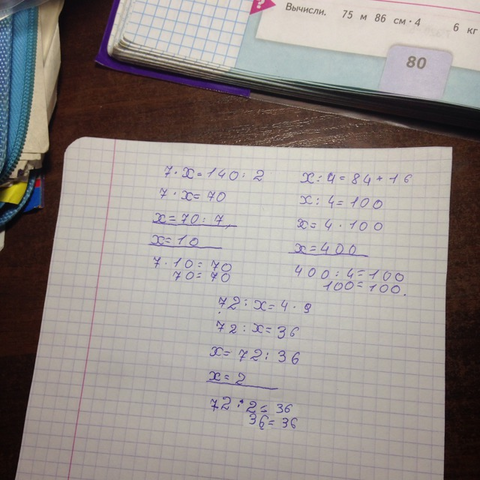 Вычисли. 75 м 86 см · 4 6 кг
80
7 · x = 140 : 2
7 · x = 70
x = 70 : 7
x = 10
7 · 10 = 70
70 = 70
x : 4 = 84 + 16
x : 4 = 100
x = 4 · 100
x = 400
400 : 4 = 100
100 = 100.
72 : x = 4 · 9
72 : x = 36
x = 72 : 36
x = 2
72 : 2 = 36
36 = 36